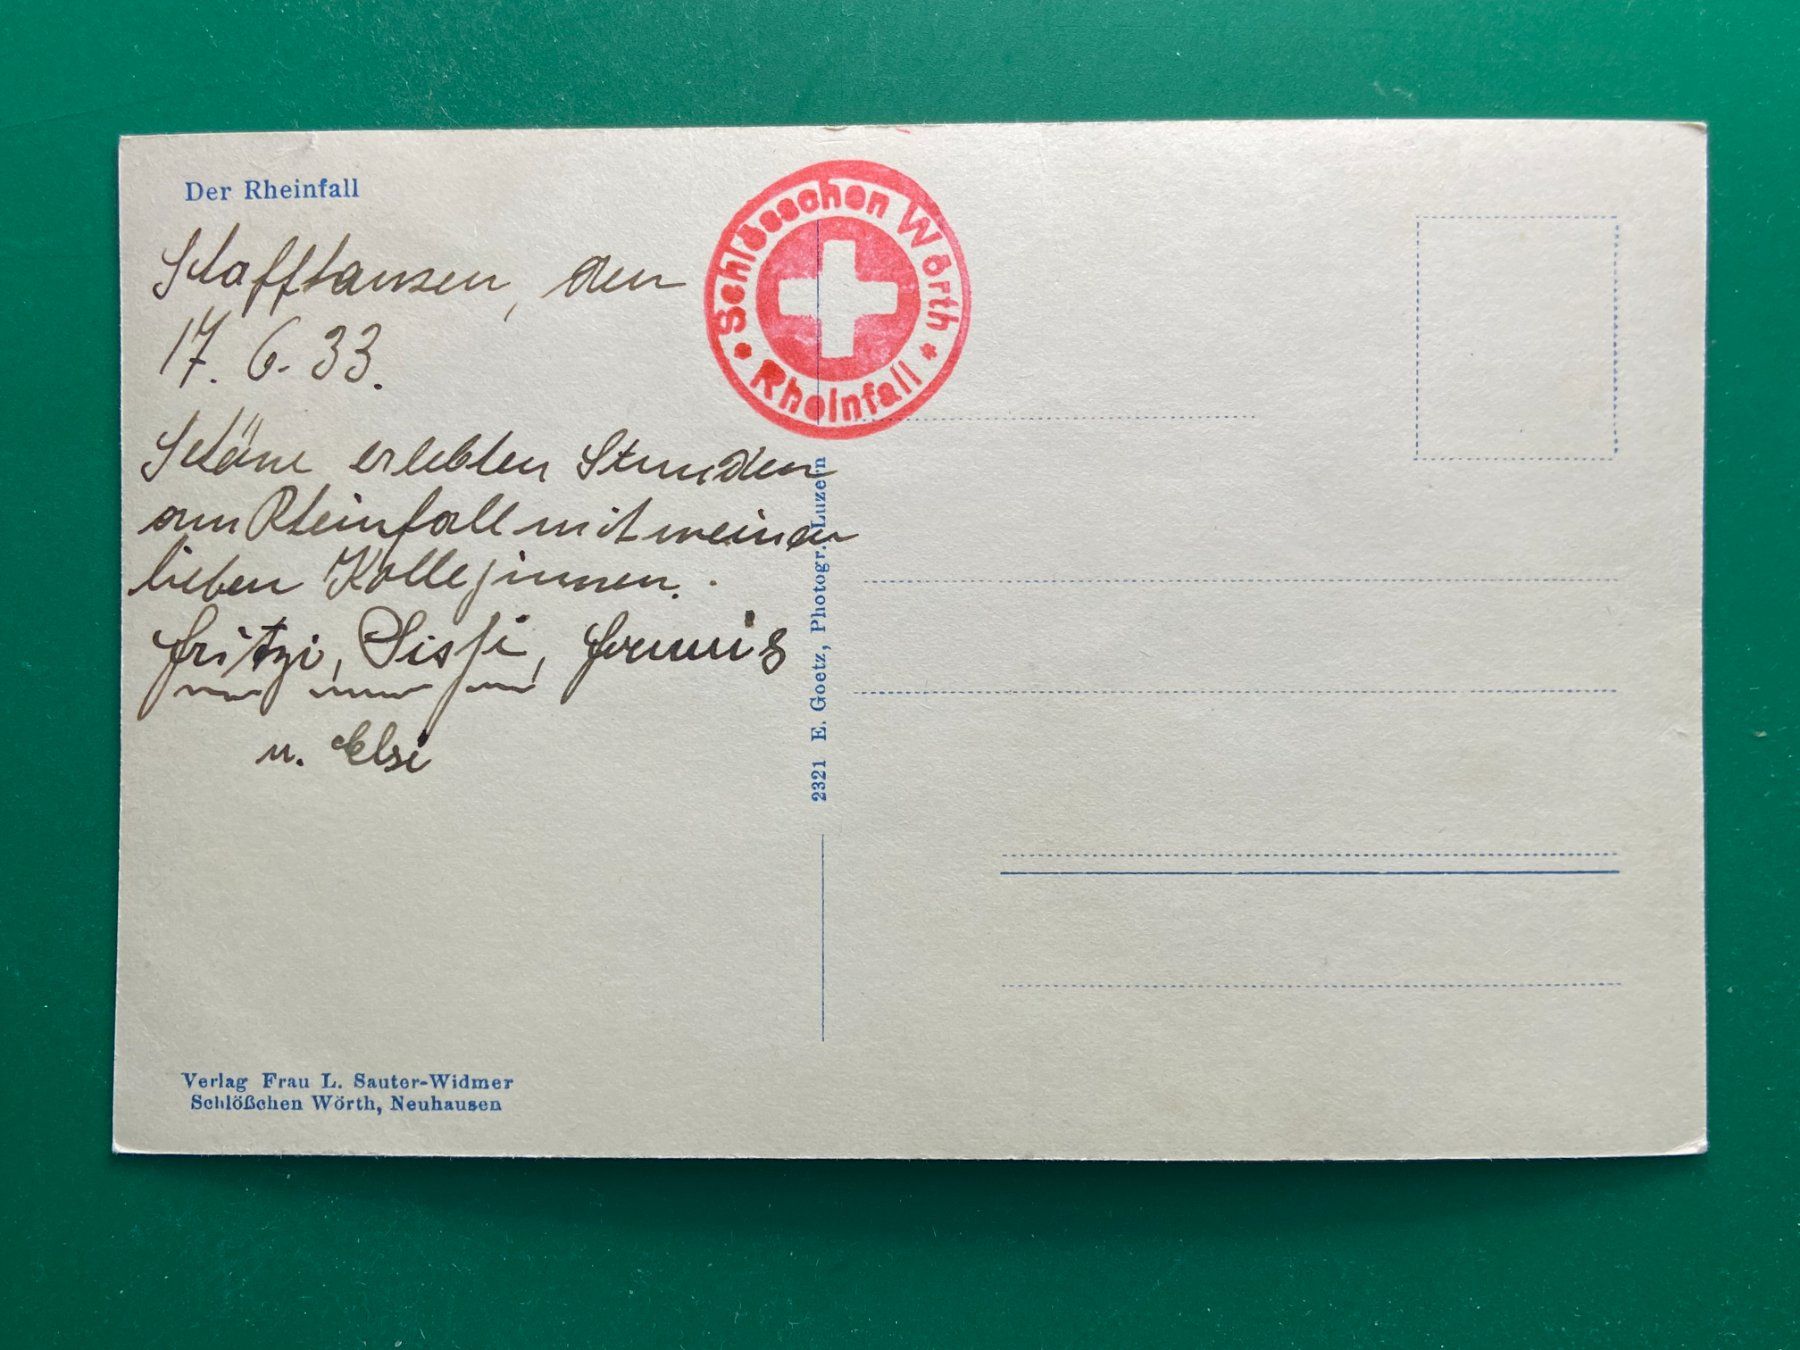 Der Rheinfall
Schaffhausen, den
17. 6. 33.
Schöne erlebten Stunden
am Rheinfall mit meinen
lieben Kolleginnen.
Fritzi, Sissi,
u. Elsi
Verlag Frau L. Sauter-Widmer
Schlößchen Wörth, Neuhausen
Schlösschen Wörth
Rheinfall
2321 E. Goetz, Photogr. Luzern